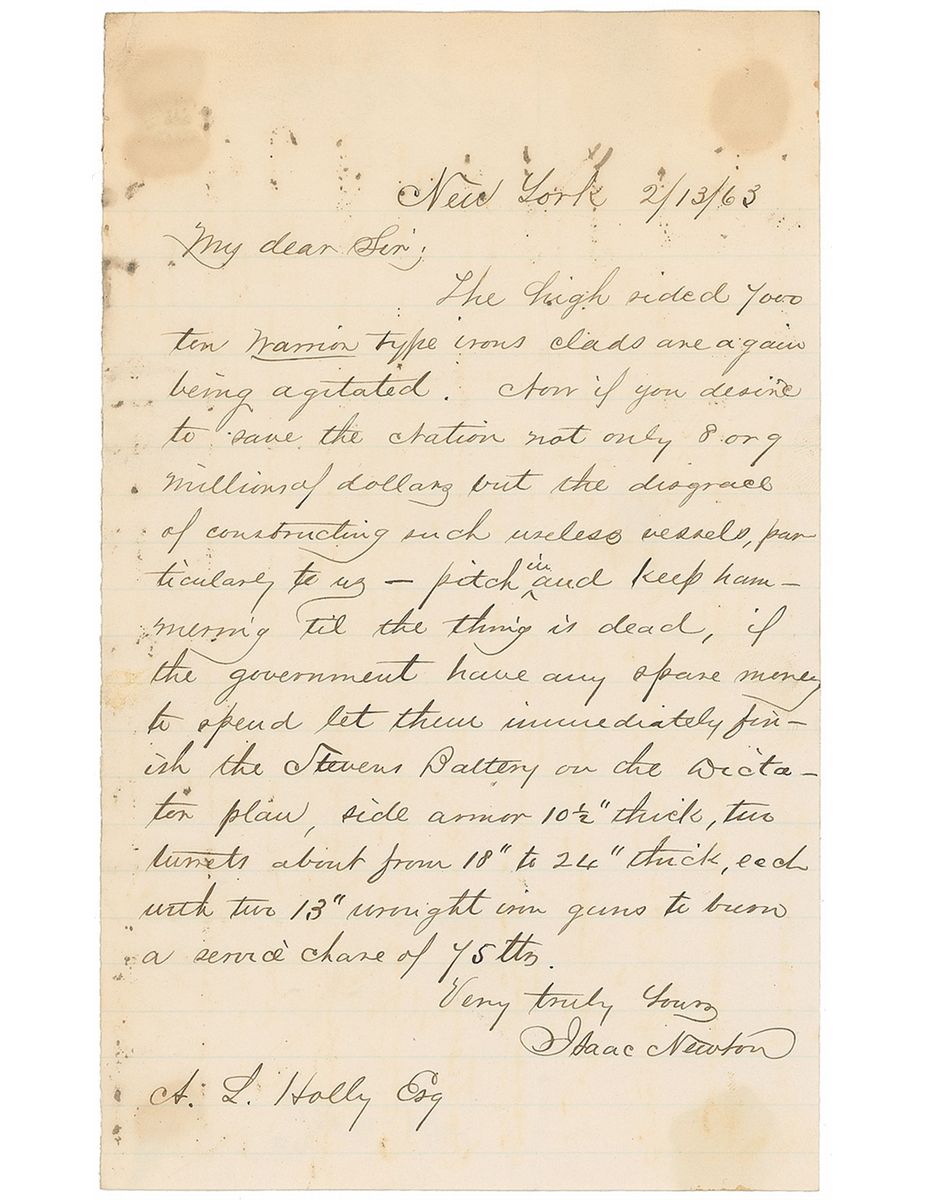 New York 2/13/63
My dear Sir;
The high sided 7000
ton Warrior type irons clads are again
being agitated. Now if you desire
to save the Nation not only 8 or 9
millions of dollars but the disgrace
of constructing such useless vessels, par
ticularly to us — pitch in and keep ham-
mering til the thing is dead, if
the government have any spare money
to spend let them immediately fin-
ish the Stevens Battery on the Dicta-
tor plan, side armor 10½" thick, two
turrets about from 18" to 24" thick, each
with two 13" wrought iron guns to burn
a service charge of 75 lbs.
Very truly Yours
Isaac Newton
A. L. Holly Esq